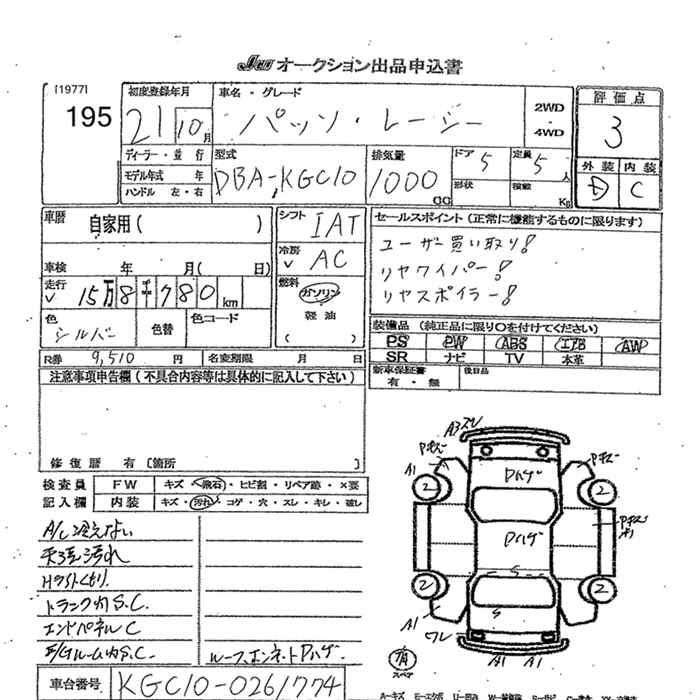 JU オークション出品申込書
[1977]
195
初度登録年月
21 10月
車名・グレード
パッソ・レーシー
2WD
・
4WD
評価点
3
外装 内装
D C
ディーラー・並行
モデル年式 年
ハンドル 左・右
型式
DBA-KGC10
排気量
1000
cc
ドア 5
定員 5 人
形状
積載 Kg
車歴
自家用( )
シフト IAT
冷房 AC
車検 年 月( 日)
走行 15万8千780km
燃料
ガソリン
軽油
( )
色 シルバー
色替
色コード
セールスポイント(正常に機能するものに限ります)
ユーザー買い取り!
リヤワイパー!
リヤスポイラー!
装備品(純正品に限り〇を付けてください)
PS PW ABS エアB AW
SR ナビ TV 本革
新車保証書
有・無
後日品
R券 9,510 円 名変期限 月 日
注意事項申告欄(不具合内容等は具体的に記入して下さい)
修復歴 有〔箇所 〕
検査員
記入欄
FW キズ・飛石・ヒビ割・リペア跡・×要
内装 キズ・汚れ・コゲ・穴・スレ・キレ・破レ
A/C冷えない
天張汚れ
Hライトくもり
トランク内S.C.
エンドパネルC
E/Gルーム内S.C.
ルーフ、ボンネットDハゲ
車台番号 KGC10-0261774
A3スレ
Pキズ
Pキズ
A1
Dハゲ
2
2
Pキズ
A1
Dハゲ
S
2
2
S
A1
A1
ワレ
A1 A1
有
スペア